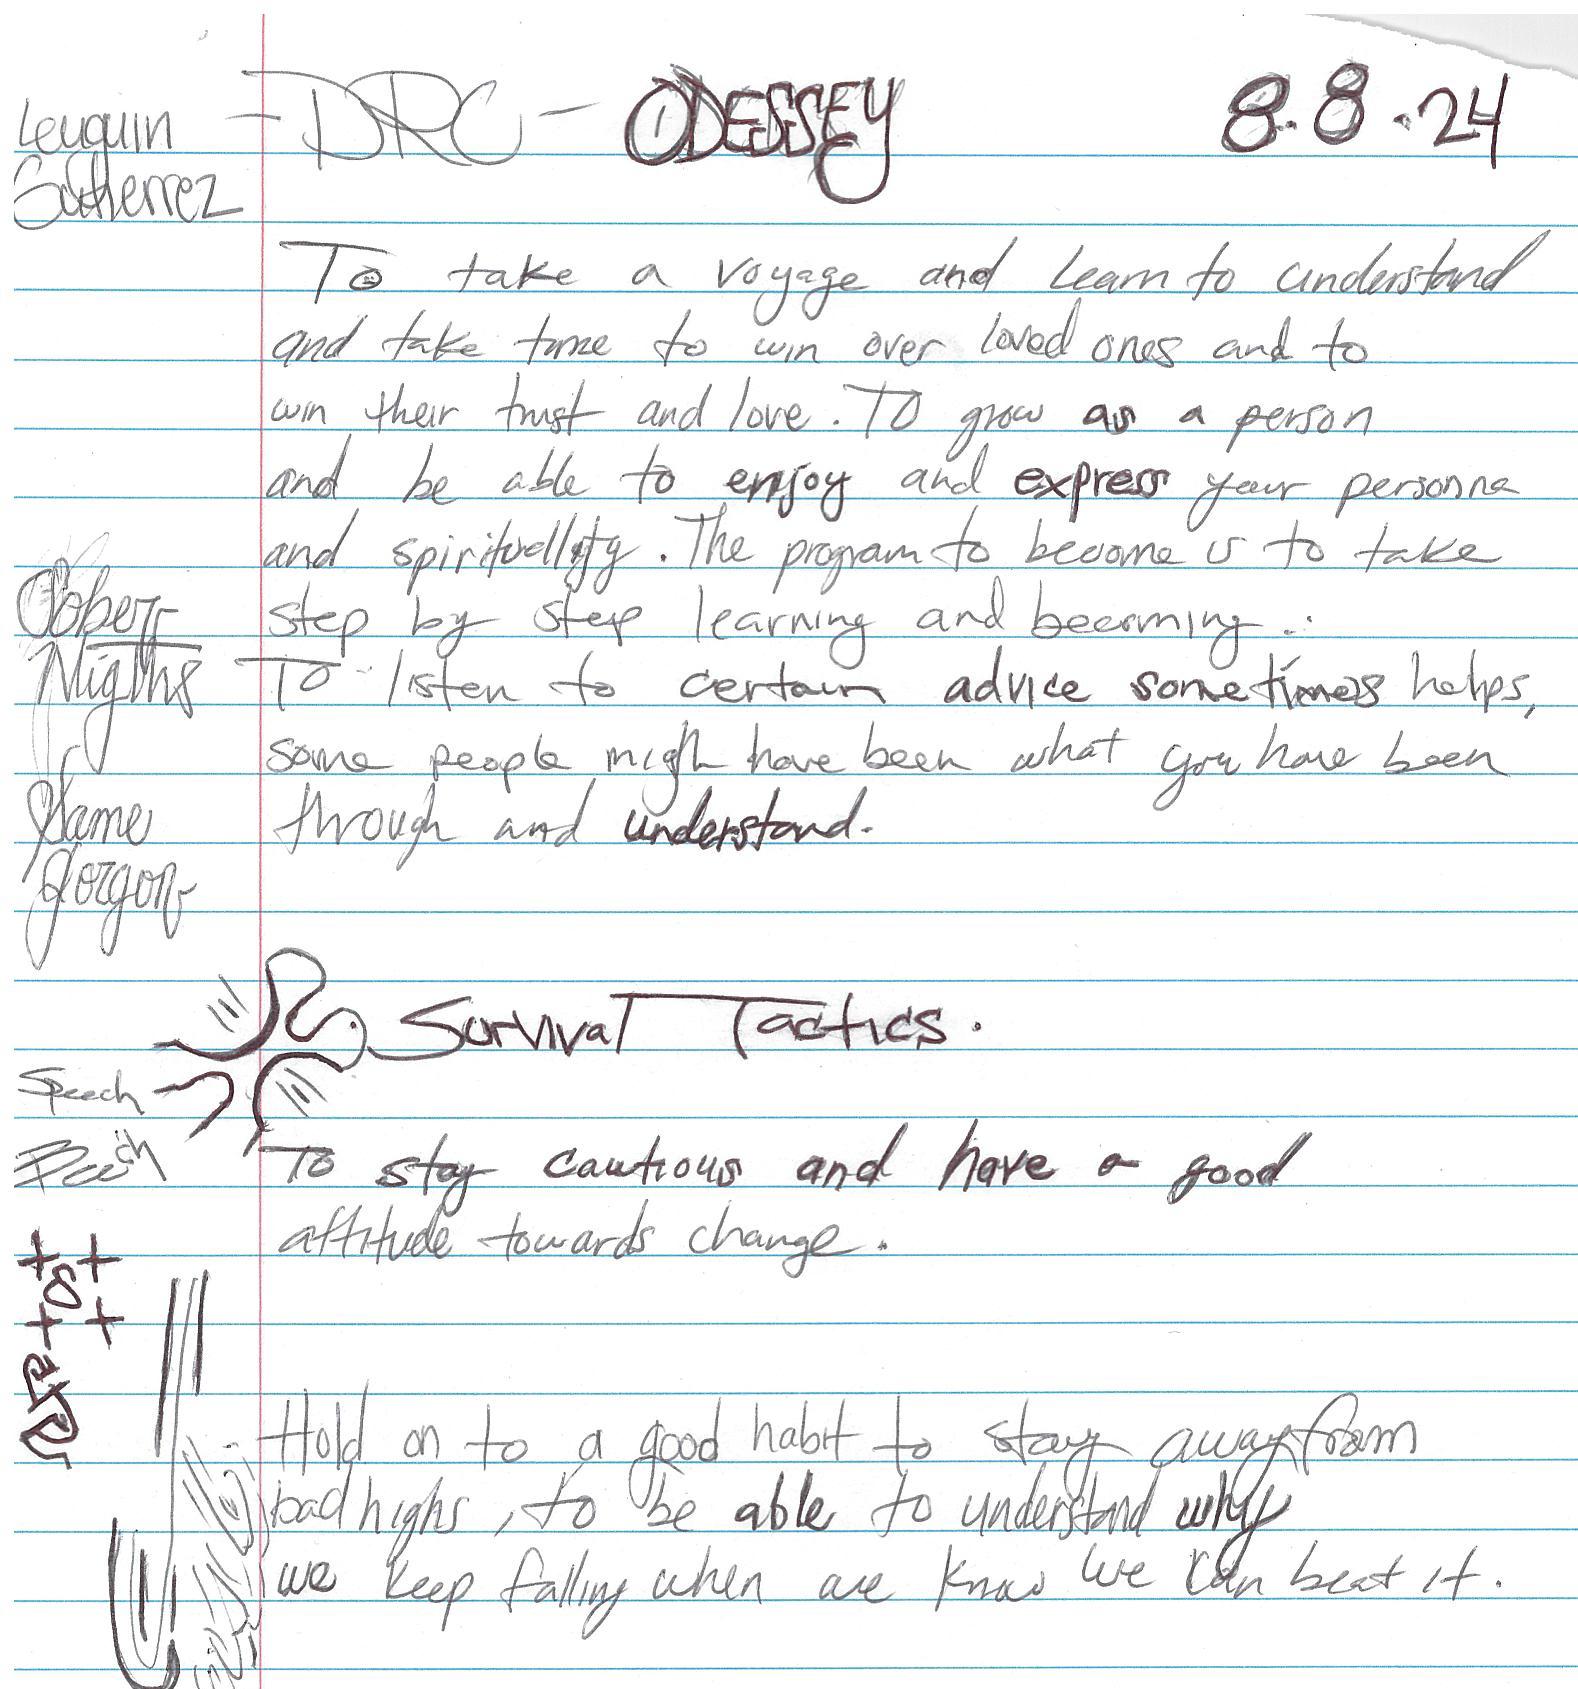 – DRC – ODESSEY 8.8.24
Gutierrez
To take a voyage and learn to understand
and take time to win over loved ones and to
win their trust and love. To grow as a person
and be able to enjoy and express your personna
and spirituellity. The program to become is to take
step by step learning and becoming..
To listen to certain advice sometimes helps,
some people migh have been what you have been
through and understand.
Sober
Nigths
Same
Jorgon
Survival Tactics.
Speech
To stay cautious and have a good
attitude towards change.
Hold on to a good habit to stay away from
bad highs, to be able to understand why
we keep falling when we know we can beat it.